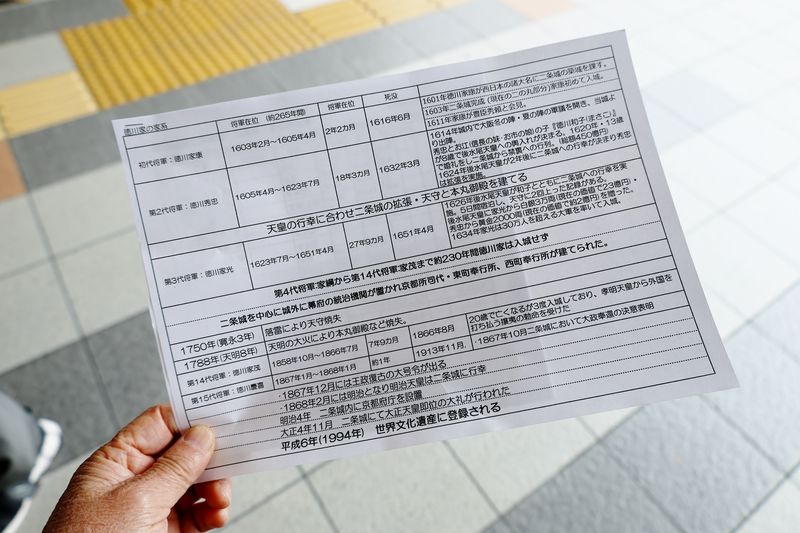 徳川家の家系
将軍在位（約265年間）
将軍在位
死没
初代将軍：徳川家康
1603年2月～1605年4月
2年2カ月
1616年6月
1601年徳川家康が西日本の諸大名に二条城の築城を課す。
1603年二条城完成（現在の二の丸部分）家康初めて入城。
1611年家康が豊臣秀頼と会見。
1614年城内で大阪冬の陣・夏の陣の軍議を開き、当城より出陣。
第2代将軍：徳川秀忠
1605年4月～1623年7月
18年3カ月
1632年3月
秀忠とお江（信長の妹・お市の娘）の子『徳川和子（まさこ）が8歳で後水尾天皇への輿入れが決まる。1620年・13歳で婚礼をし二条城から禁裏への行列。（総額450億円）
1624年後水尾天皇が2年後に二条城への行幸が決まり秀忠は拡張を実施。
天皇の行幸に合わせ二条城の拡張・天守と本丸御殿を建てる
第3代将軍：徳川家光
1623年7月～1651年4月
27年9カ月
1651年4月
1626年後水尾天皇が和子とともに二条城への行幸を実施。5日間宿泊し、天守に2回上った記録がある。
後水尾天皇に家光から白銀3万両（現在の価値で23億円）・秀忠から黄金2000両（現在の価値で約2億円）を贈った。
1634年家光は30万人を超える大軍を率いて入城。
第4代将軍:家綱から第14代将軍:家茂まで約230年間徳川家は入城せず
二条城を中心に城外に幕府の統治機関が置かれ京都所司代・東町奉行所、西町奉行所が建てられた。
1750年（寛永3年）
落雷により天守焼失
1788年（天明8年）
天明の大火により本丸御殿など焼失。
第14代将軍：徳川家茂
1858年10月～1866年7月
7年9カ月
1866年8月
20歳で亡くなるが3度入城しており、孝明天皇から外国を打ち払う攘夷の勅命を受けた
第15代将軍：徳川慶喜
1867年1月～1868年1月
約1年
1913年11月
・1867年10月二条城において大政奉還の決意表明
・1867年12月には王政復古の大号令が出る
・1868年2月には明治となり明治天皇は二条城に行幸
明治4年　二条城内に京都府庁を設置
大正4年11月　二条城にて大正天皇即位の大礼が行われた
平成6年（1994年）　世界文化遺産に登録される